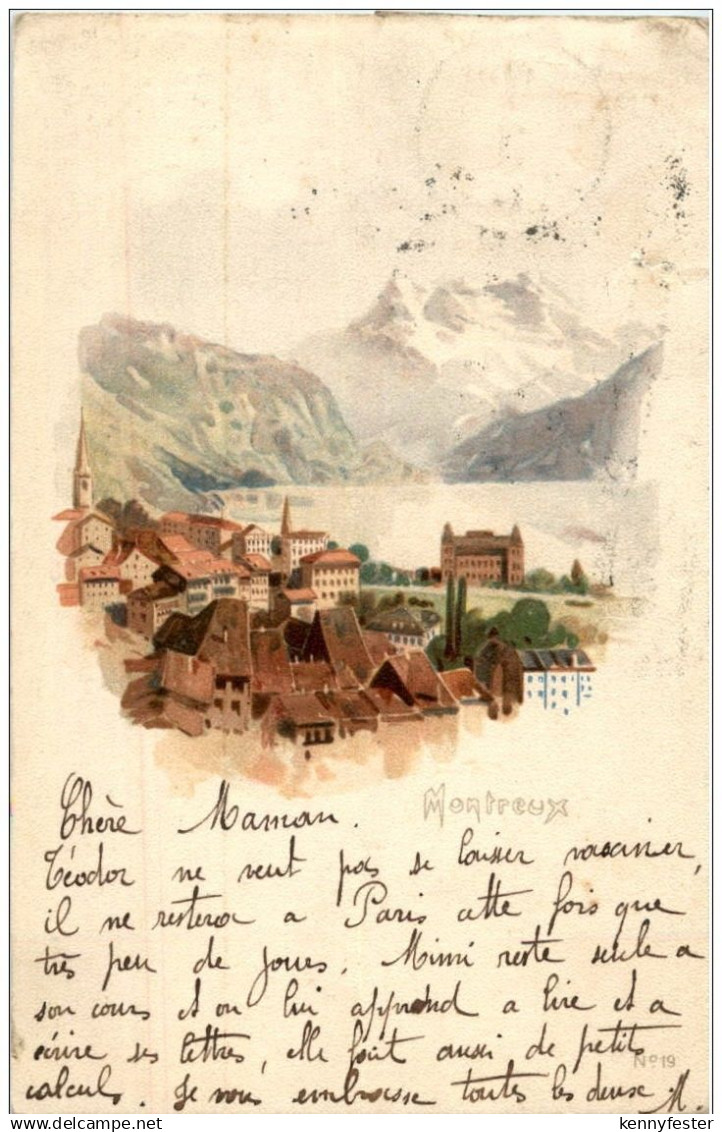 Montreux
Chère Maman.
Téodor ne veut pas se laisser vacciner,
il ne restera a Paris cette fois que
très peu de joues. Mimi reste seule a
son cours et on lui apprend a lire et a
écrire ses lettres, elle fait aussi de petits
No 19
calculs. Je vous embrasse toutes les deux M.
kennyfester